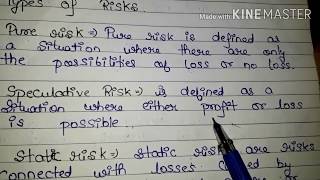 Types of Risks.
Made with KINEMASTER
Pure risk => Pure risk is defined as
a situation where there are only
the possibilities of loss or no loss.
Speculative Risk => is defined as a
situation where either profit or loss
is possible
Static risk => static risk are risks
connected with losses by